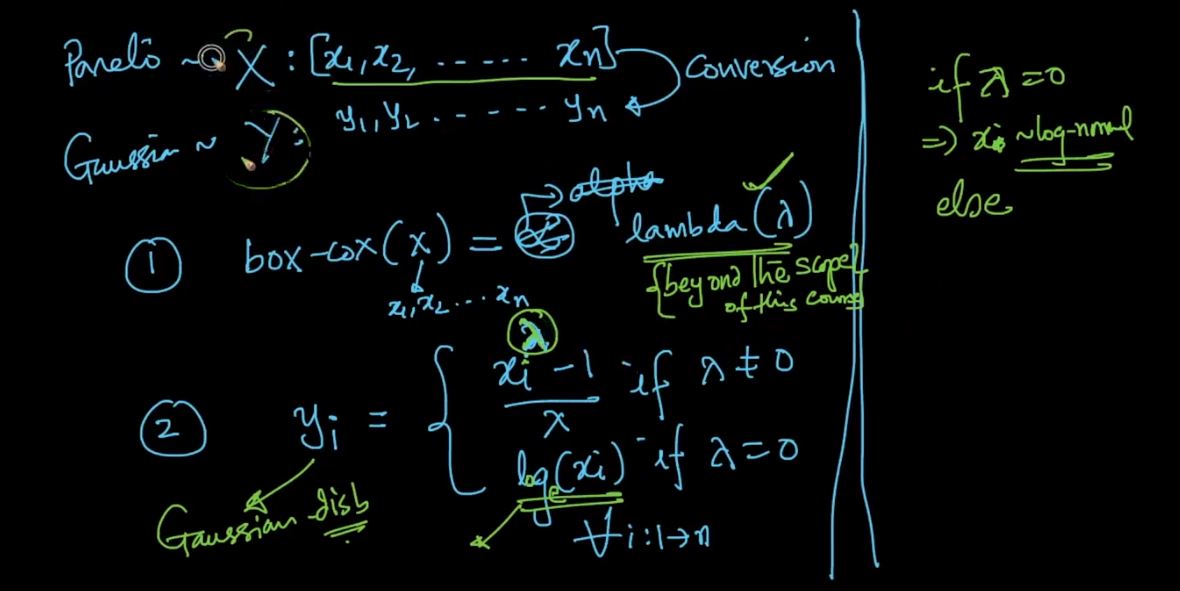 Pareto ~ X : [x₁, x₂, ...... xₙ]
conversion
y₁, y₂ ...... yₙ
Gaussian ~ Y :
① box-cox(x) = alpha lambda (λ)
{beyond the scope
of this course
x₁, x₂ ... xₙ
② yᵢ = { (xᵢ^λ - 1) / λ if λ ≠ 0
logₑ(xᵢ) if λ = 0
∀ i : 1 → n
Gaussian disb
if λ = 0
⇒ xᵢ ~ log-normal
else